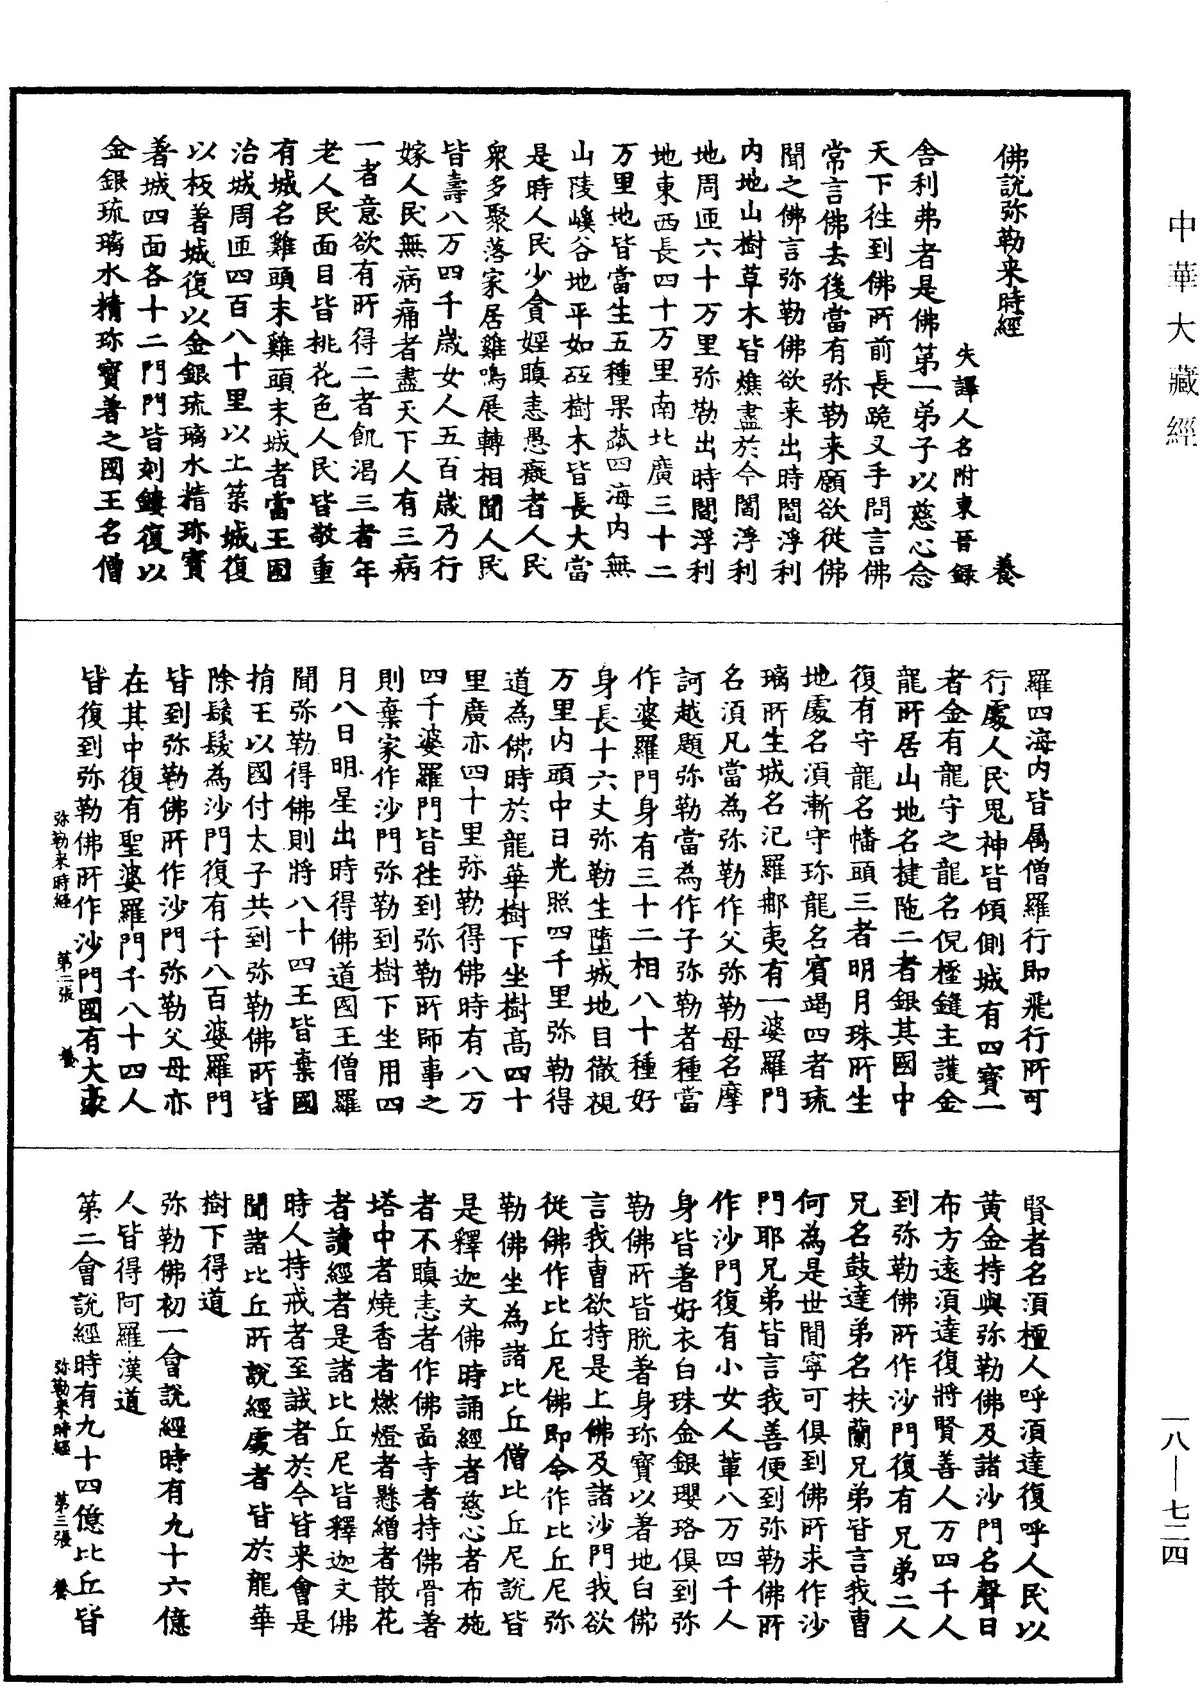 中華大藏經
佛說弥勒来時經 養
失譯人名附東晉録
舎利弗者是佛第一弟子以慈心念
天下往到佛所前長跪叉手問言佛
常言佛去後當有弥勒来願欲從佛
聞之佛言弥勒佛欲来出時閻浮利
内地山樹草木皆燋盡於今閻浮利
地周帀六十万里弥勒出時閻浮利
地東西長四十万里南北廣三十二
万里地皆當生五種果蓏四海内無
山陵嵠谷地平如砥樹木皆長大當
是時人民少貪婬瞋恚愚癡者人民
衆多聚落家居雞鳴展轉相聞人民
皆壽八万四千歳女人五百歳乃行
嫁人民無病痛者盡天下人有三病
一者意欲有所得二者飢渴三者年
老人民面目皆桃花色人民皆敬重
有城名雞頭末雞頭末城者當王國
治城周帀四百八十里以土築城復
以板著城復以金銀琉璃水精珎寶
著城四面各十二門門皆刻鏤復以
金銀琉璃水精珎寶著之國王名僧
羅四海内皆属僧羅行即飛行所可
行處人民鬼神皆傾側城有四寶一
者金有龍守之龍名倪㮹鏠主護金
龍所居山地名揵陁二者銀其國中
復有守龍名幡頭三者明月珠所生
地處名湏漸守珎龍名賓竭四者琉
璃所生城名汜羅那夷有一婆羅門
名湏凡當為弥勒作父弥勒母名摩
訶越題弥勒當為作子弥勒者種當
作婆羅門身有三十二相八十種好
身長十六丈弥勒生墮城地目徹視
万里内頭中日光照四千里弥勒得
道為佛時於龍華樹下坐樹髙四十
里廣亦四十里弥勒得佛時有八万
四千婆羅門皆往到弥勒所師事之
則棄家作沙門弥勒到樹下坐用四
月八日明星出時得佛道國王僧羅
聞弥勒得佛則將八十四王皆棄國
捐王以國付太子共到弥勒佛所皆
除鬚髮為沙門復有千八百婆羅門
皆到弥勒佛所作沙門弥勒父母亦
在其中復有聖婆羅門千八十四人
皆復到弥勒佛所作沙門國有大豪
弥勒来時經 第二張 養
賢者名湏檀人呼湏達復呼人民以
黄金持與弥勒佛及諸沙門名聲日
布方遠湏達復將賢善人万四千人
到弥勒佛所作沙門復有兄弟二人
兄名鼓達弟名扶蘭兄弟皆言我曹
何為是世間寧可俱到佛所求作沙
門耶兄弟皆言我善便到弥勒佛所
作沙門復有小女人輩八万四千人
身皆著好衣白珠金銀瓔珞俱到弥
勒佛所皆脫著身珎寶以著地白佛
言我曹欲持是上佛及諸沙門我欲
從佛作比丘尼佛即令作比丘尼弥
勒佛坐為諸比丘僧比丘尼說皆
是釋迦文佛時誦經者慈心者布施
者不瞋恚者作佛啚寺者持佛骨著
塔中者燒香者燃燈者懸繒者散花
者讀經者是諸比丘尼皆釋迦文佛
時人持戒者至誠者於今皆来會是
聞諸比丘所說經處者皆於龍華
樹下得道
弥勒佛初一會說經時有九十六億
人皆得阿羅漢道
第二會說經時有九十四億比丘皆
弥勒来時經 第三張 養
一八—七二四